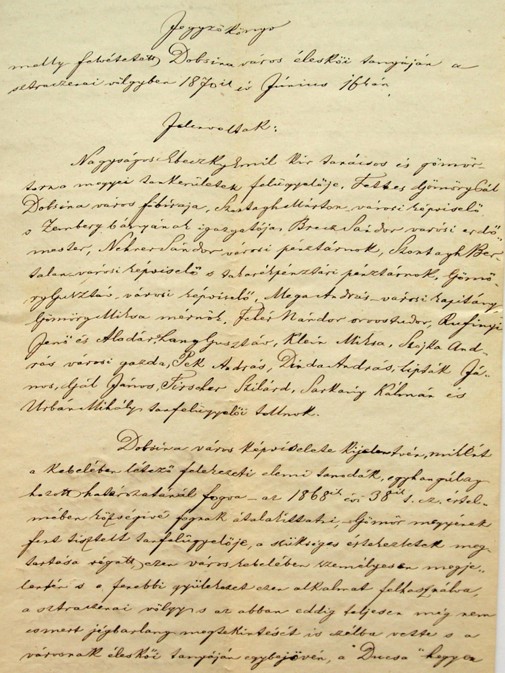 Jegyzőkönyv
melly felvétetett Dobsina város éleskői tanyáján a
sztraczenai völgyben 1870ik év Június 16kán
Jelenvoltak:
Nagyságos Ebeczky Emil kir. tanácsos és gömör-
torna megyei tankerületek felügyelője, Fehér Gömöry Pál
Dobsina város főbirája, Szontagh Márton városi képviselő
s Zemberg bányának igazgatója, Breck Sándor városi erdő
mester, Nehrer Sándor városi pénztárnok, Szontagh Ber-
talan városi képviselő s takarékpénztári pénztárnok, Gömö-
ry Gusztáv, városi képviselő, Mega András városi kapitány
Gömöry Miksa mérnök, Fehér Nándor orvostudor, Rufinyi
Jenő és Aladár, Lang Gusztáv, Klein Miksa, Szojka And-
rás városi gazda, Pek András, Dinda András, Lipták Já-
nos, Gál János, Fischer Szilárd, Sárkány Kálmán és
Urbán Mihály tanfelügyelői tollnok.
Dobsina város képviselete kijelentvén, miként
a kebelében létező felekezeti elemi tanodák, egyhangúlag
hozott határzatánál fogva az 1868ik évi 38ik t. cz. értel-
mében községivé fognak átalakíttatni, Gömör megyének
fent tisztelt tanfelügyelője, a szükséges értekezletek meg-
tartása végett, ezen város kebelében személyesen megje-
lenvén s a fenebbi gyülekezet ezen alkalmat felhasználva,
a sztraczenai völgy s az abban eddig teljesen még nem
ismert jégbarlang megtekintését is czélba vette s a
városnak éleskői tanyáján egybejövén, a "Ducsa" hegyen